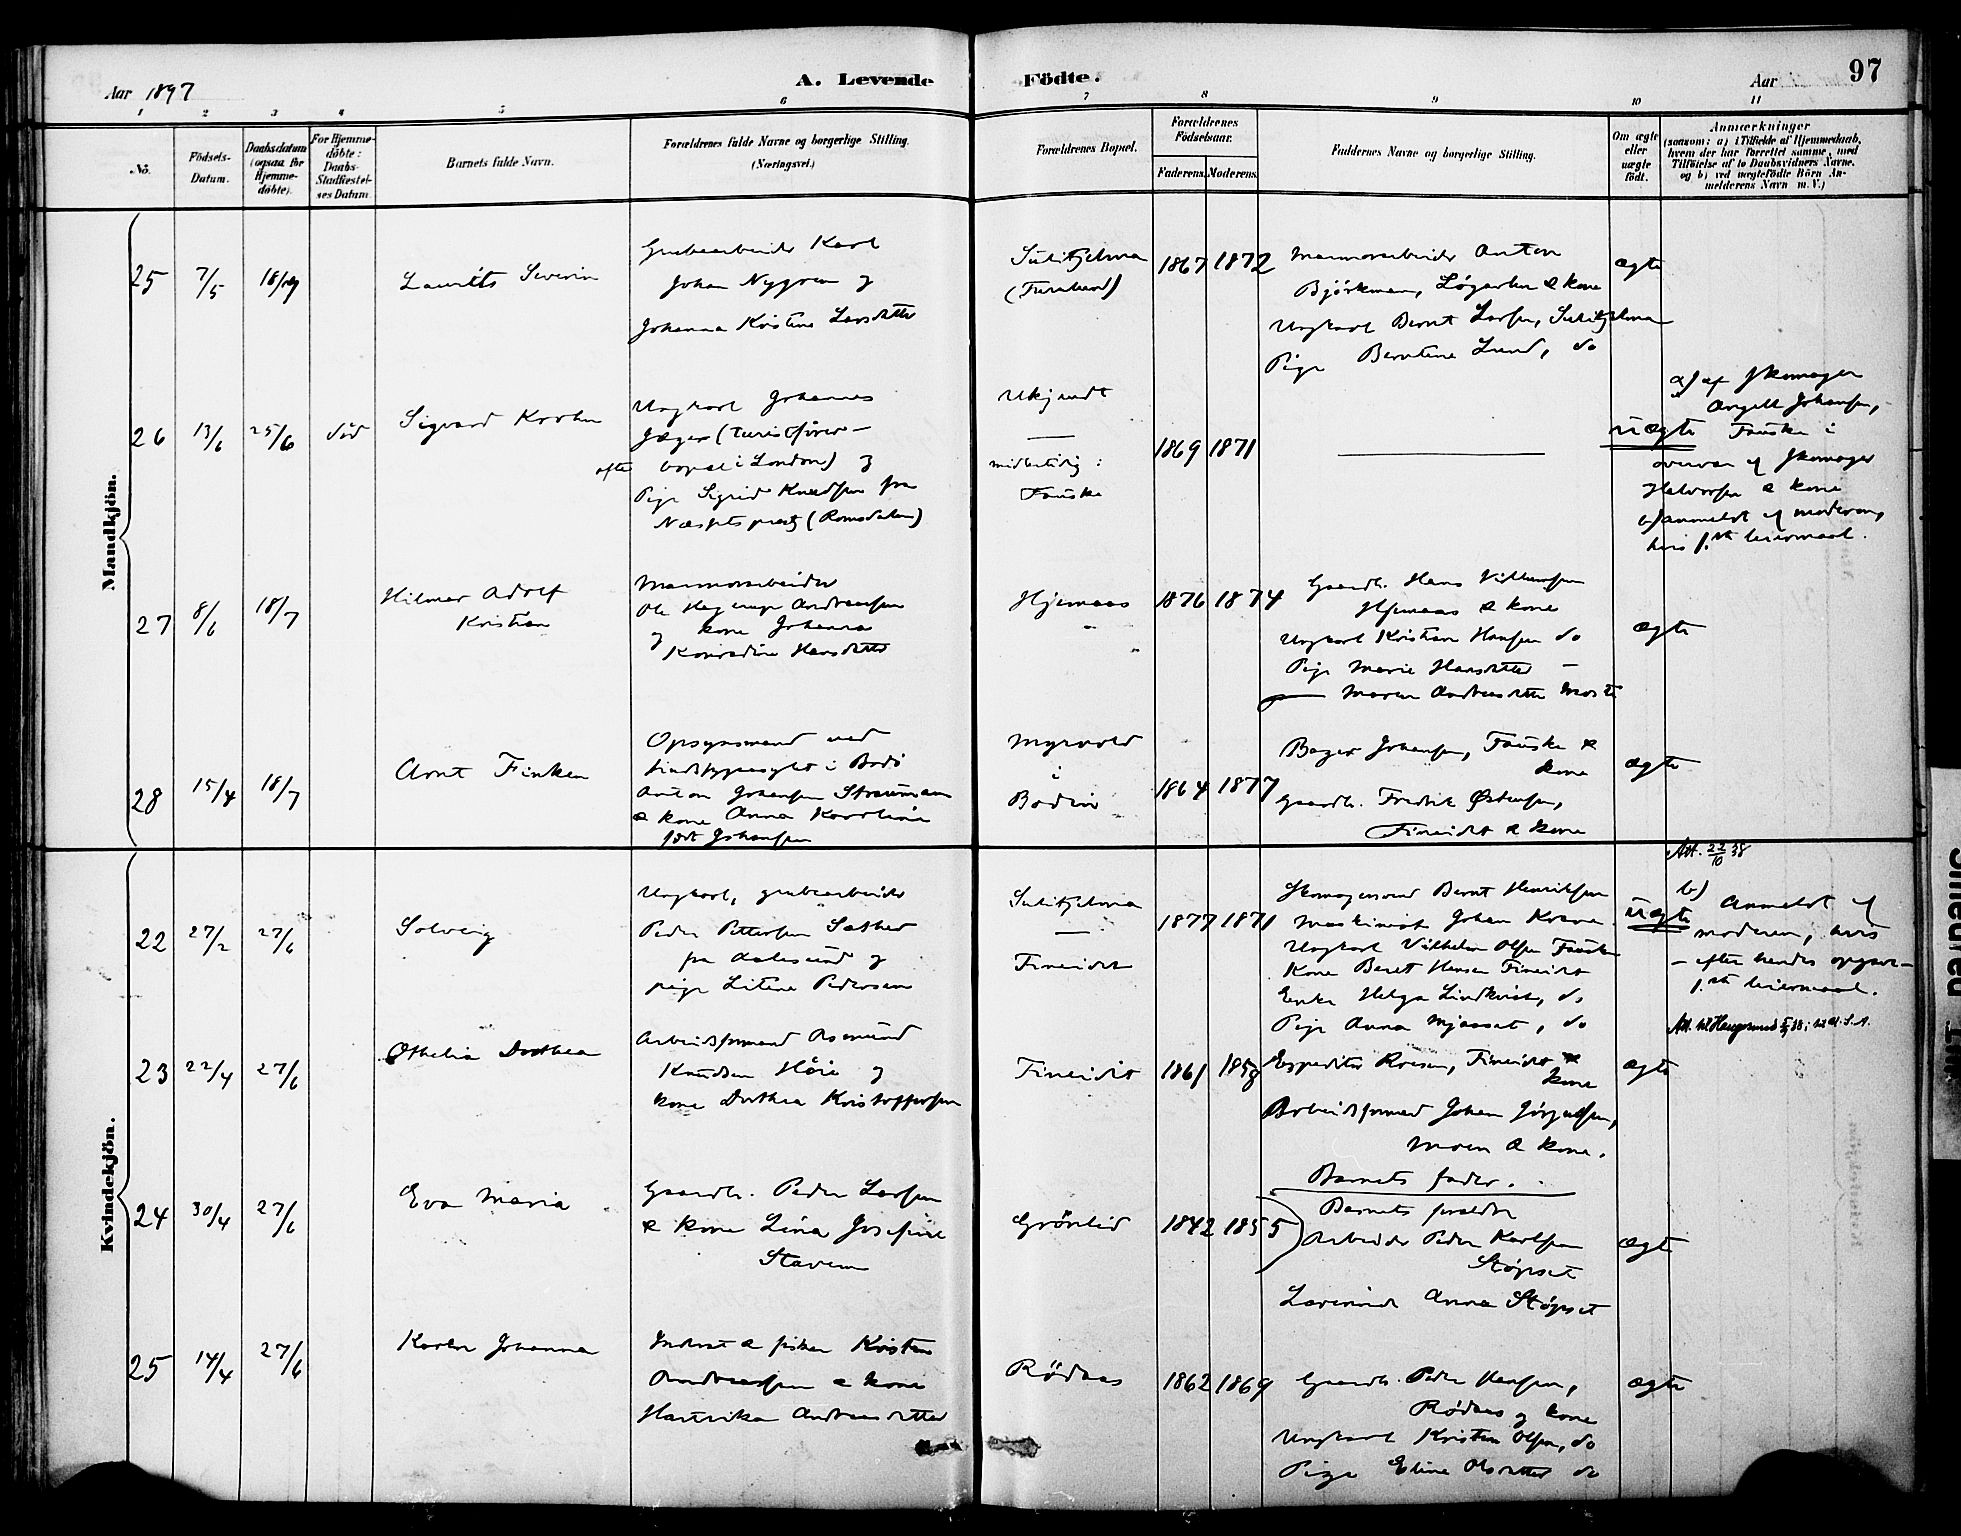 Aar 1897
A. Levende
Födte.
Aar
97
1 2 3 4 5 6 7 8 9 10 11
No.
Födsels-
Datum.
Daabsdatum
(ogsaa for
Hjemme-
döbte).
For Hjemme-
döbte:
Daabs-
Stadfæstel-
ses Datum
Barnets fulde Navn.
Forældrenes fulde Navne og borgerlige Stilling.
(Næringsvei.)
Forældrenes Bopæl.
Forældrenes
Födselsaar.
Faderens. Moderens.
Faddernes Navne og borgerlige Stilling.
Om ægte
eller
uægte
født.
Anmærkninger
(saasom: a) i Tilfælde af Hjemmedaab,
hvem der har forrettet samme, med
Tilföielse af to Daabsvidners Navne,
og b) ved uægtefödte Börn An-
melderens Navn m. V.)
Mandkjön.
25
7/5
Laurits Severin
Grubearbeider Karl
Johan Nygren og
Johanna Kristine Larsdatter
Sulitjelma
(Furulund)
1867 1872
Marmorarbeider Anton
Björkman, Løgavlen & kone
Ungkarl Bernt Larsen, Sulitjelma
Pige Berntine Lund, do
ægte
26
13/6
25/6
död
Sigvard Krohn
Ungkarl Johannes
Jæger (turistfører –
efter bopæl i London) og
Pige Sigrid Knudsen fra
Næssets prestg (Romsdalen)
Ukjendt
midlertidig:
Fauske
1869 1871
uægte
a) af Skomager
Angell Johansen,
Fauske i
overvær af Skomager
Halvorsen & kone
b) anmeldt af moderen,
hvis 1.ste leiermaal.
27
8/6
18/7
Hilmar Adolf
Kristian
Marmorarbeider
Ole Hagerup Andreassen
og kone Johanna
Konradine Hansdatter
Hjemaas
1876 1874
Gaardb. Hans Vilhelmsen
Hjemaas & kone
Ungkarl Kristian Hansen do
Pige Marie Hansdatter –
Maren Andreasdatter Moste
ægte
28
15/4
18/7
Arnt Finken
Opsynsmand ved
Sindssygeasylet i Bodö
Anton Johansen Straumsnes
& kone Anna Karoline
født Johansen
Myrvold
i
Bodin
1864 1877
Bager Johansen, Fauske &
kone
Gaardb. Fredrik Østensen,
Fineidet & kone
ægte
Kvindekjön.
22
27/2
27/6
Solveig
Ungkarl, grubearbeider
Peder Pettersen Sæther
fra Aalesund og
pige Litine Pedersen
Sulitjelma
Fineidet
1877 1871
Skomagersvend Bernt Henriksen
Maskinist Johan Krane
Ungkarl Vilhelm Olsen Fauske
Kone Berett Hansen Fineidet
Enke Helga Lindkvist, do
Pige Anna Mjaaset, do
uægte
Att. 22/10 38
b) Anmeldt af
moderen, hvis
– efter hendes opgave –
1.ste leiermaal.
23
22/4
27/6
Othelia Dorthea
Arbeidsformand Asmund
Knudsen Höie og
kone Dorthea Kristoffersen
Fineidet
1861 1858
Expeditör Roesen, Fineidet &
kone
Arbeidsformand Johan Jörgensen,
Moen & kone.
Barnets fader.
ægte
24
30/4
27/6
Eva Maria
Gaardb. Peder Larsen
& kone Lina Josefine
Stavem
Grönlid
1842 1855
Barnets forældre
Arbeider Peder Karlsen
Støpset
Lærerinde Anna Støpset
ægte
25
14/4
27/6
Karen Johanna
Inderst & fisker Kristen
Andreassen & kone
Hartvika Andreasdatter
Rödaas
1862 1869
Gaardb. Peder Hansen,
Rödaas og kone
Ungkarl Kristen Olsen, do
Pige Eline Olsdatter do
ægte